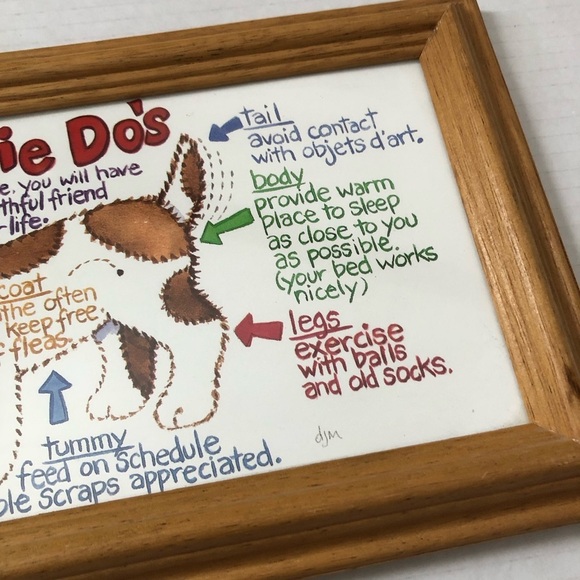 ie Do's
e. you will have
thful friend
life.
tail
avoid contact
with objets d'art.
body
provide warm
place to sleep
as close to you
as possible.
(your bed works
nicely)
coat
the often
keep free
fleas.
legs
exercise
with balls
and old socks.
tummy
feed on schedule
ble scraps appreciated.
djm